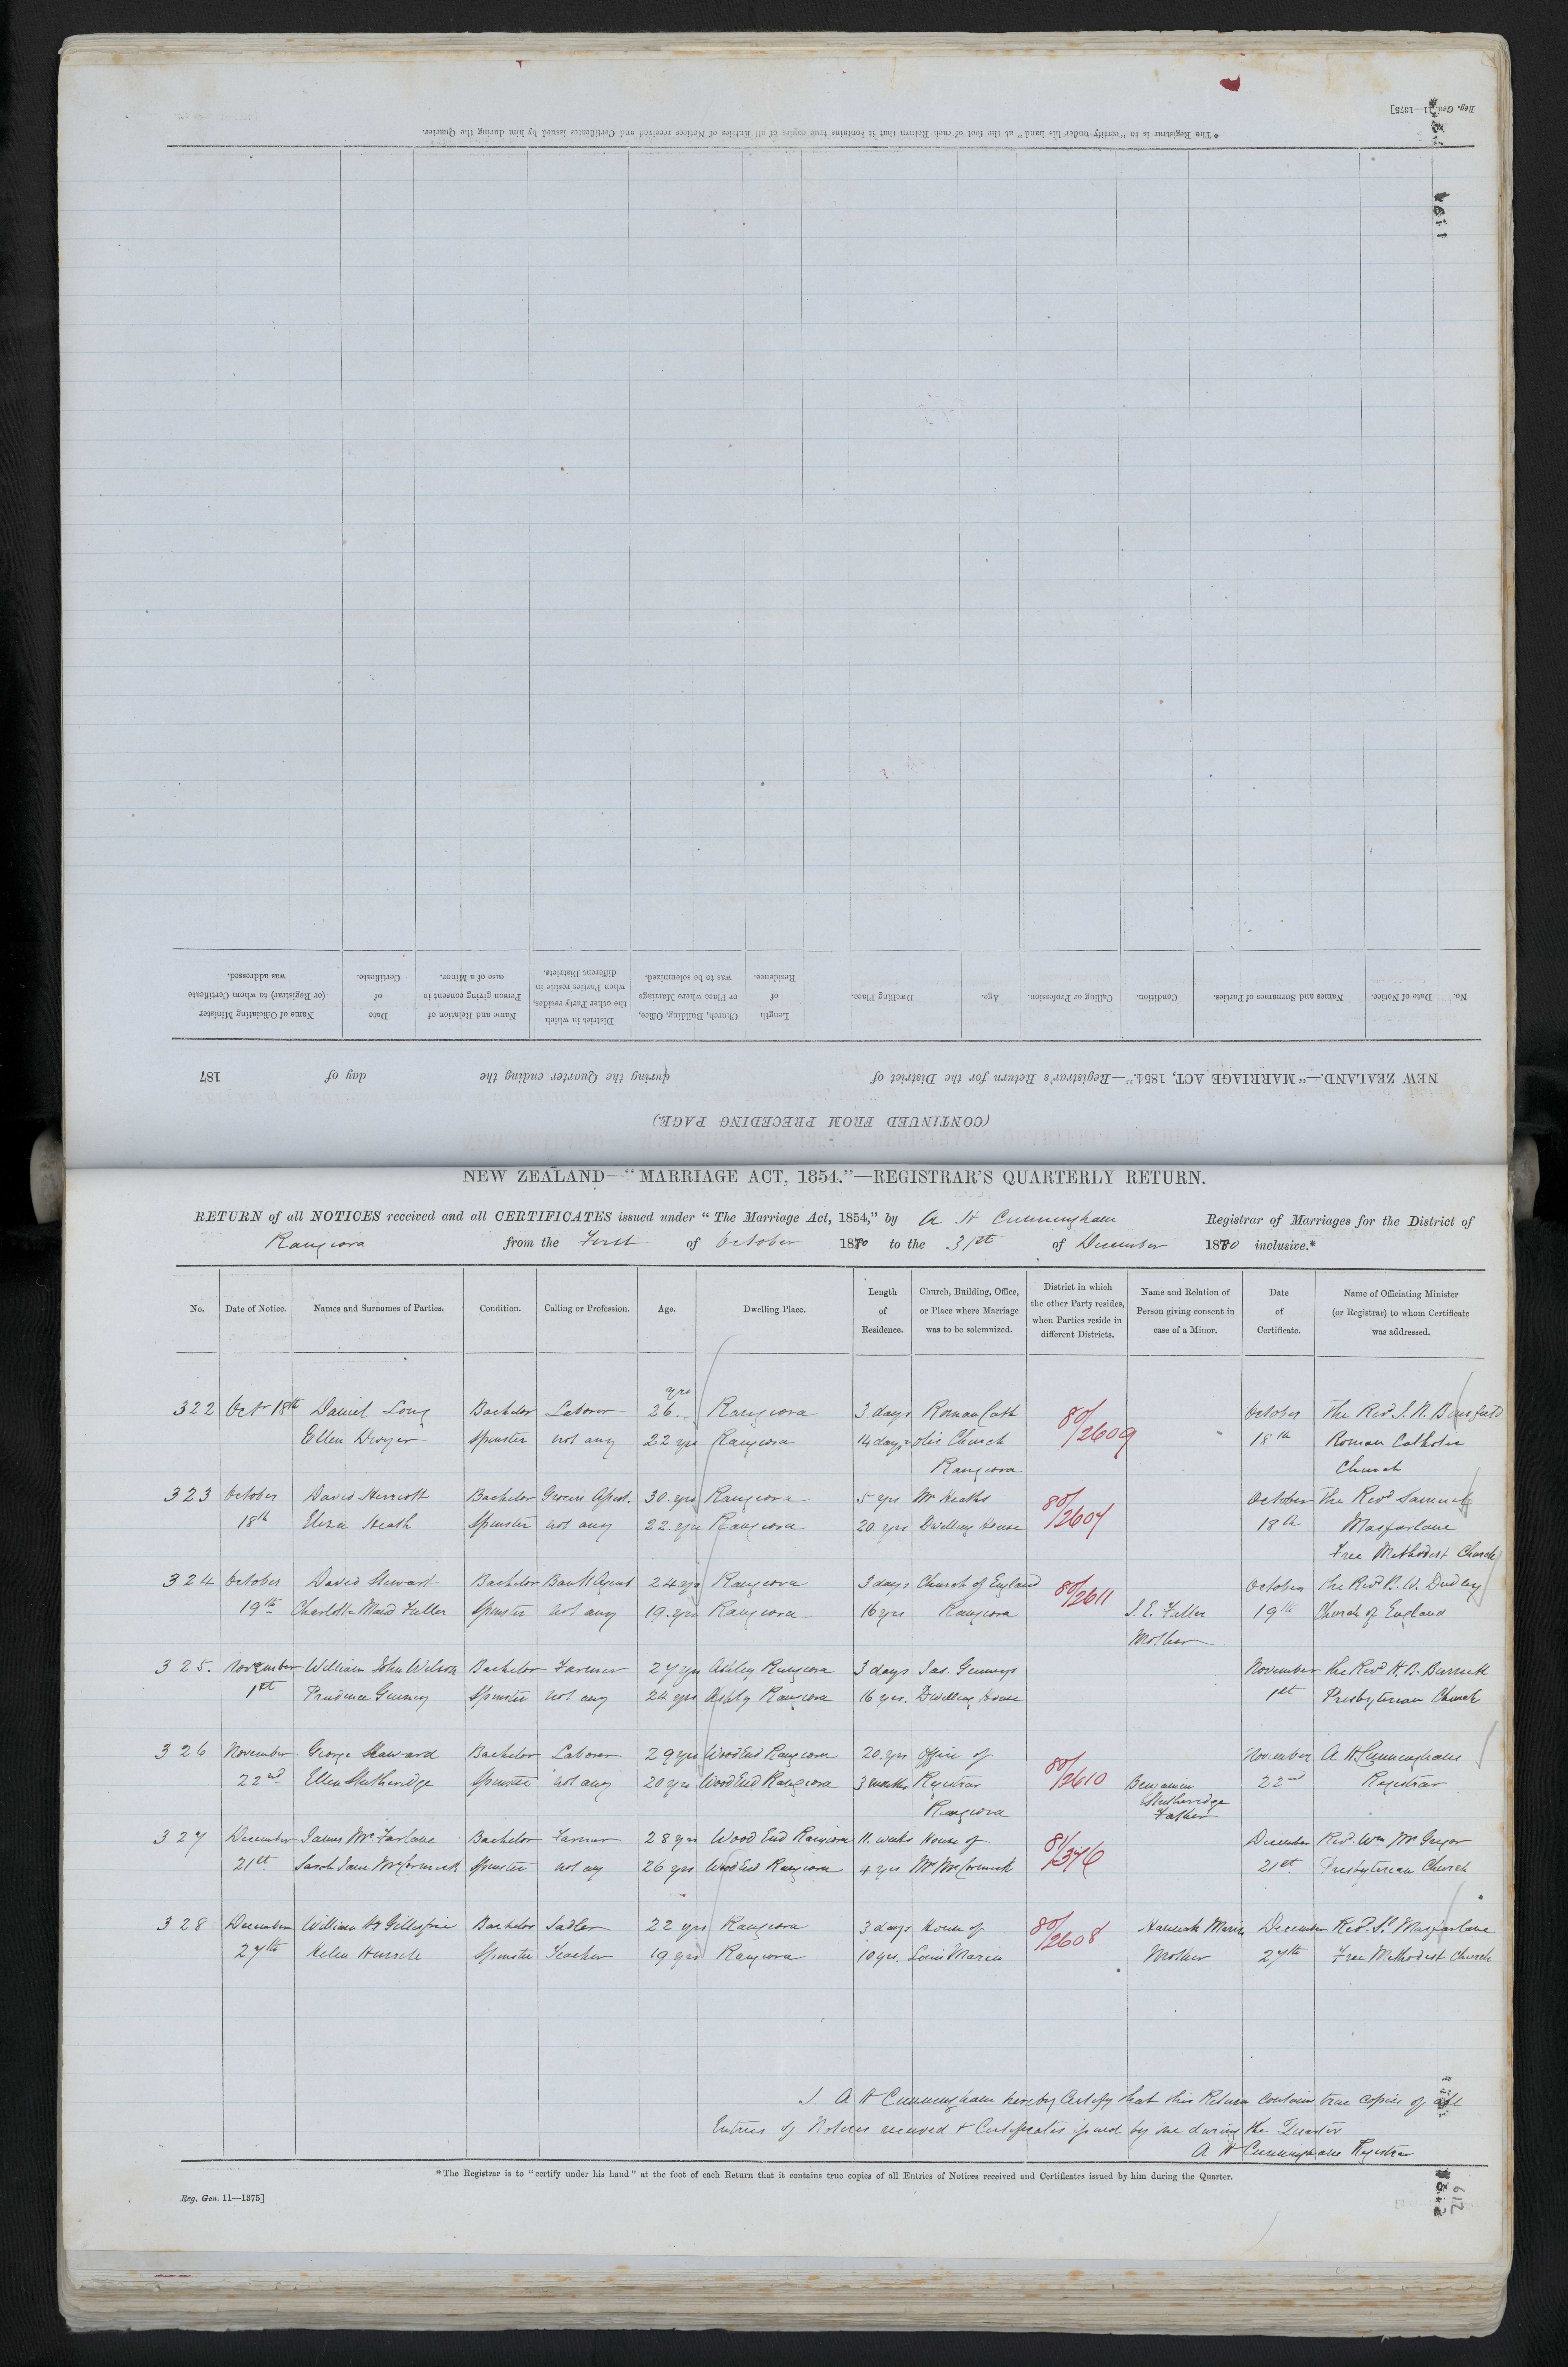 Reg. Gen. 11—1375]
*The Registrar is to "certify under his hand" at the foot of each Return that it contains true copies of all Entries of Notices received and Certificates issued by him during the Quarter.
No. Date of Notice. Names and Surnames of Parties. Condition. Calling or Profession. Age. Dwelling Place. Length of Residence. Church, Building, Office, or Place where Marriage was to be solemnized. District in which the other Party resides, when Parties reside in different Districts. Name and Relation of Person giving consent in case of a Minor. Date of Certificate. Name of Officiating Minister (or Registrar) to whom Certificate was addressed.
NEW ZEALAND.—"MARRIAGE ACT, 1854."—Registrar's Return for the District of during the Quarter ending the day of 187
(CONTINUED FROM PRECEDING PAGE.)
NEW ZEALAND—"MARRIAGE ACT, 1854."—REGISTRAR'S QUARTERLY RETURN.
RETURN of all NOTICES received and all CERTIFICATES issued under "The Marriage Act, 1854," by A H Cunningham Registrar of Marriages for the District of
Rangiora from the First of October 1880 to the 31st of December 1880 inclusive.*
No. Date of Notice. Names and Surnames of Parties. Condition. Calling or Profession. Age. Dwelling Place. Length of Residence. Church, Building, Office, or Place where Marriage was to be solemnized. District in which the other Party resides, when Parties reside in different Districts. Name and Relation of Person giving consent in case of a Minor. Date of Certificate. Name of Officiating Minister (or Registrar) to whom Certificate was addressed.
yrs
322 Octr 18th Daniel Long Bachelor Laborer 26 Rangiora 3 days Roman Cath 80/2609 October The Rev. J. N. Binsfeld
Ellen Dwyer Spinster not any 22 yrs Rangiora 14 days olic Church 18th Roman Catholic
Rangiora Church
323 October David Herriott Bachelor Grocers Assist. 30 yrs Rangiora 5 yrs Mr Heaths 80/2607 October The Revd Samuel
18th Eliza Heath Spinster not any 22 yrs Rangiora 20 yrs Dwelling House 18th Macfarlane
Free Methodist Church
324 October David Stewart Bachelor Bank Agent 24 yrs Rangiora 3 days Church of England 80/2611 October The Revd B. W. Dudley
19th Charlotte Maud Fuller Spinster not any 19 yrs Rangiora 16 yrs Rangiora S. E. Fuller 19th Church of England
Mother
325. November William John Wilson Bachelor Farmer 27 yrs Ashley Rangiora 3 days Jas. Gurneys November The Revd H. B. Burnett
1st Prudence Gurney Spinster not any 24 yrs Ashley Rangiora 16 yrs. Dwelling House 1st Presbyterian Church
326 November George Seaward Bachelor Laborer 29 yrs Wood End Rangiora 20 yrs Office of 80/2610 November A H Cunningham
22nd Ellen Stutheridge Spinster not any 20 yrs Wood End Rangiora 3 months Registrar Benjamin 22nd Registrar
Rangiora Stutheridge
Father
327 December James McFarlane Bachelor Farmer 28 yrs Wood End Rangiora 11 weeks House of 81/376 December Revd. Wm McGregor
21st Sarah Jane McCormick Spinster not any 26 yrs Wood End Rangiora 4 yrs Mr McCormick 21st Presbyterian Church
328 December William Gillespie Bachelor Sadler 22 yrs Rangiora 3 days House of 80/2608 Hannah December Revd. S. Macfarlane
27th Helen Spinster Teacher 19 yrs Rangiora 10 yrs. Louis Marin Mother 27th Free Methodist Church
I. A H Cunningham hereby Certify that this Return contains true copies of all
Entries of Notices received & Certificates issued by me during the Quarter
A H Cunningham Registrar
*The Registrar is to "certify under his hand" at the foot of each Return that it contains true copies of all Entries of Notices received and Certificates issued by him during the Quarter.
Reg. Gen. 11—1375]
612